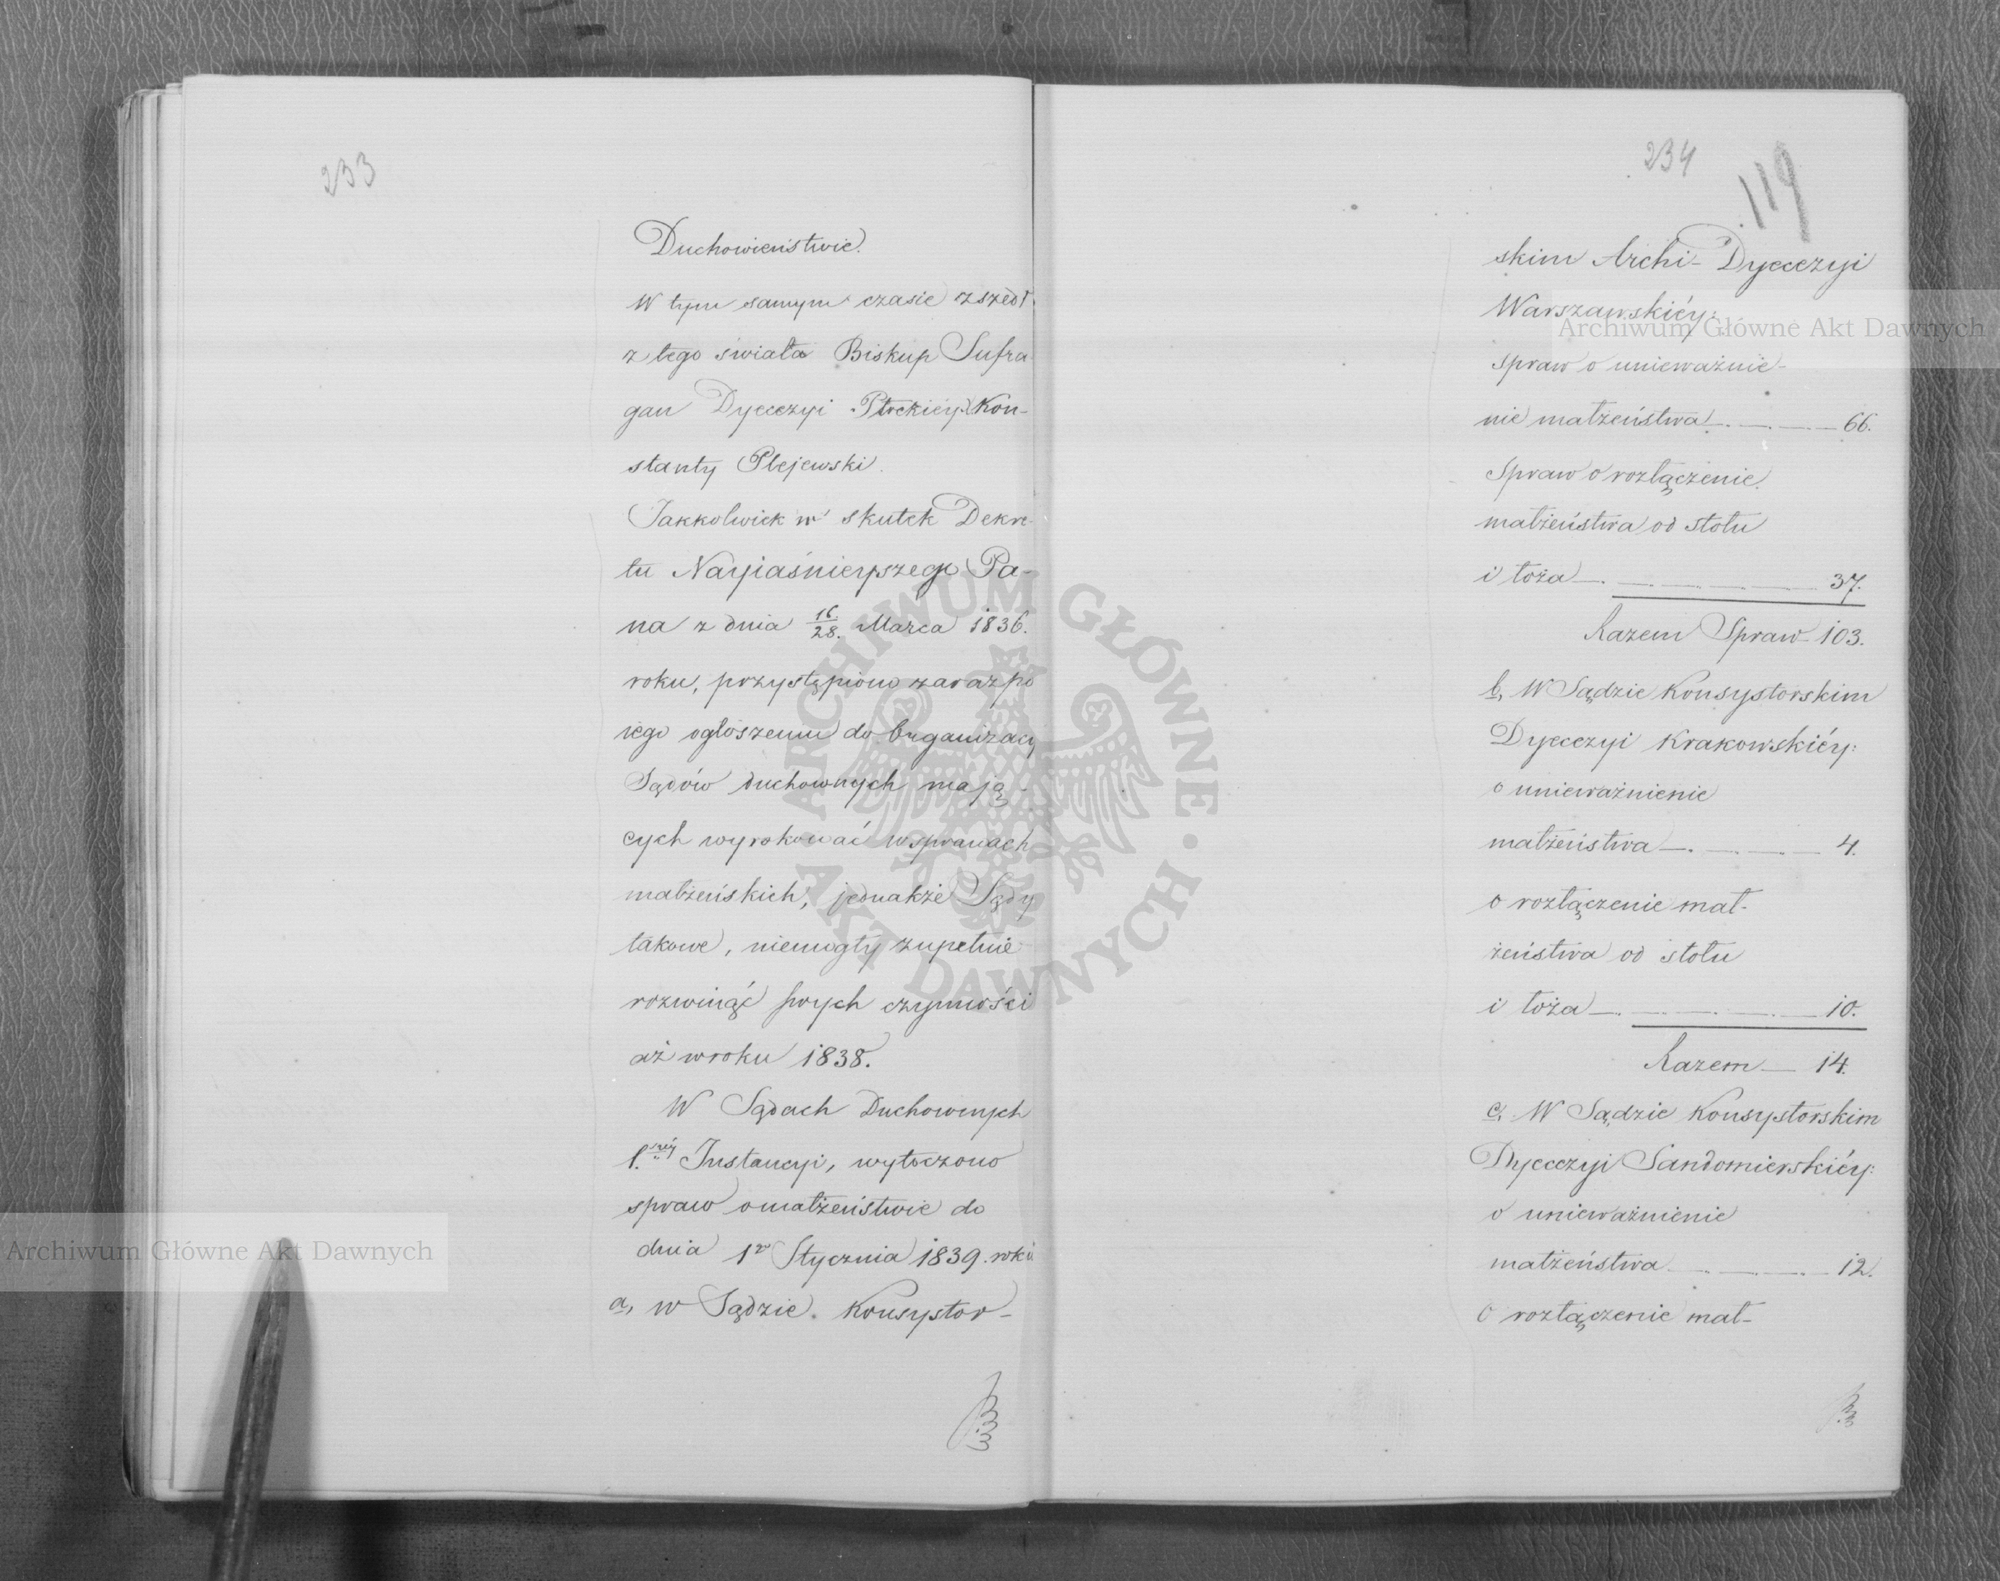 233
Duchowieństwie.
W tym samym czasie zszedł
z tego świata Biskup Sufra
gan Dyecezyi Płockiéy Kon-
stanty Plejewski.
Jakkolwiek w skutek Dekre-
tu Nayiaśnieyszego Pa-
na z dnia 16/28. Marca 1836.
roku, przystąpiono zaraz po
iego ogłoszeniu do Organizacyi
Sądów duchownych mają-
cych wyrokować w sprawach
małżeńskich, jednakże Sądy
takowe, niemogły zupełnie
rozwinąć swych czynności
aż w roku 1838.
W Sądach Duchownych
1.széy Instancyi, wytoczono
spraw o małżeństwie do
dnia 1go Stycznia 1839. roku
a, w Sądzie Konsystor-
234
119
skim Archi-Dyecezyi
Warszawskiéy:
spraw o unieważnie-
nie małżeństwa 66.
Spraw o rozłączenie
małżeństwa od stołu
i łoża 37.
Razem Spraw 103.
b, W Sądzie Konsystorskim
Dyecezyi Krakowskiéy:
o unieważnienie
małżeństwa 4.
o rozłączenie mał-
żeństwa od stołu
i łoża 10.
Razem 14.
c, W Sądzie Konsystorskim
Dyecezyi Sandomierskiéy:
o unieważnienie
małżeństwa 12.
o rozłączenie mał-
Archiwum Główne Akt Dawnych
Archiwum Główne Akt Dawnych
ARCHIWUM GŁÓWNE · AKT DAWNYCH ·